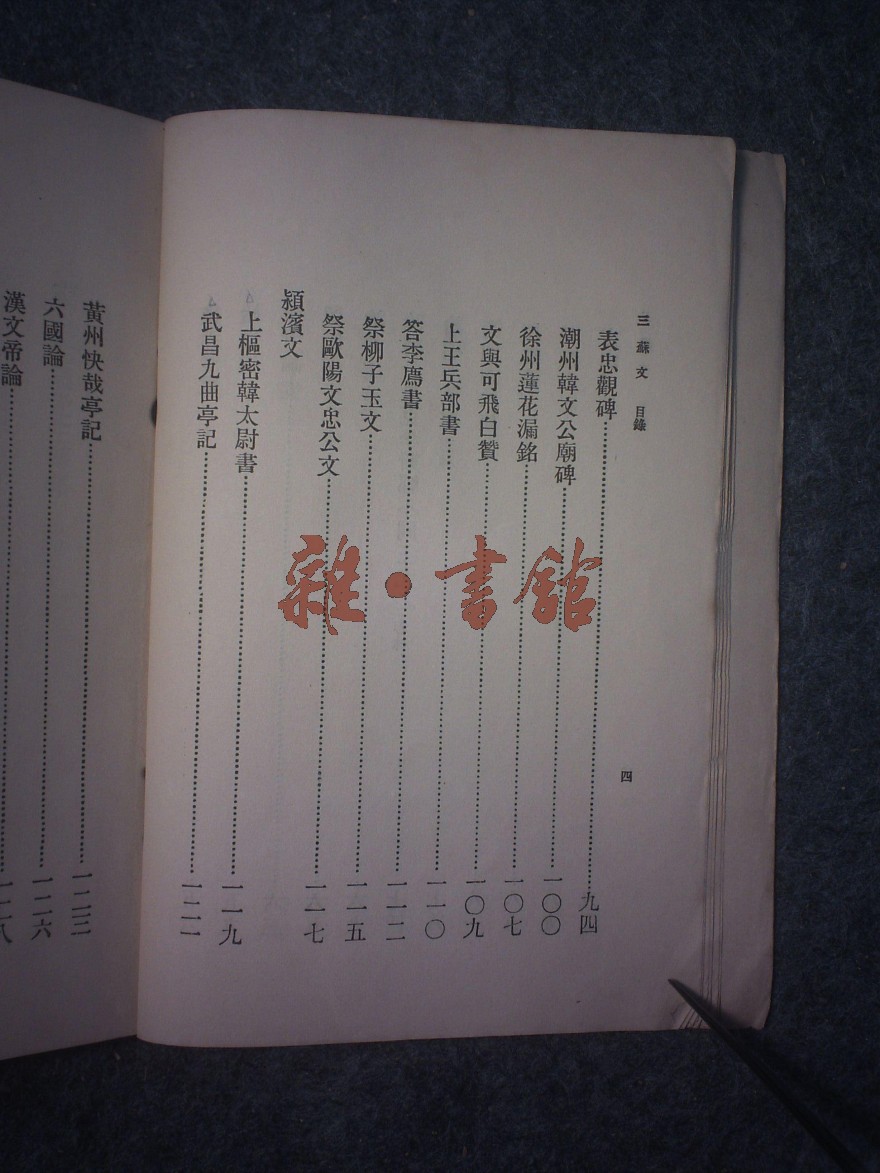 三蘇文 目錄
四
表忠觀碑……九四
潮州韓文公廟碑……一〇〇
徐州蓮花漏銘……一〇七
文與可飛白贊……一〇九
上王兵部書……一一〇
答李廌書……一一二
祭柳子玉文……一一五
祭歐陽文忠公文……一一七
潁濱文
上樞密韓太尉書……一一九
武昌九曲亭記……一二一
黃州快哉亭記……一二三
六國論……一二六
漢文帝論……一二八
雜·書館